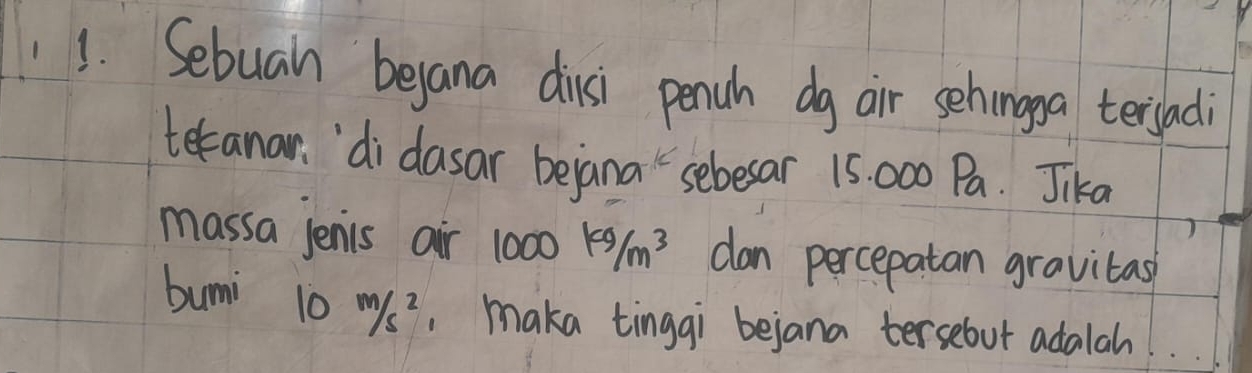 1. Sebuah bejana diisi penuh dg air sehingga terjadi
tekanan di dasar bejana sebesar 15.000 Pa. Jika
massa jenis air 1000 kg/m³ dan percepatan gravitasi
bumi 10 m/s², maka tinggi bejana tersebut adalah ....